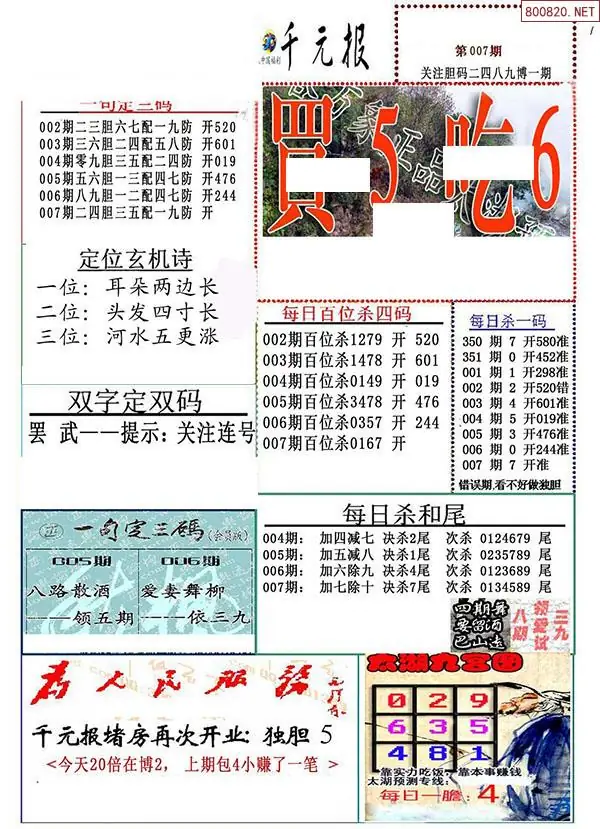 800820.NET
中国福利
千元报
第007期
关注胆码二四八九博一期
買5吃6
一句定三码
002期二三胆六七配一九防 开520
003期三六胆二四配五八防 开601
004期零九胆三五配二四防 开019
005期五六胆一三配四七防 开476
006期八九胆一二配四七防 开244
007期二四胆三五配一九防 开
定位玄机诗
一位：耳朵两边长
二位：头发四寸长
三位：河水五更涨
双字定双码
罢 武——提示：关注连号
每日百位杀四码
002期百位杀1279 开 520
003期百位杀1478 开 601
004期百位杀0149 开 019
005期百位杀3478 开 476
006期百位杀0357 开 244
007期百位杀0167 开
每日杀一码
350 期 7 开580准
351 期 0 开452准
001 期 1 开298准
002 期 2 开520错
003 期 4 开601准
004 期 5 开019准
005 期 3 开476准
006 期 0 开244准
007 期 7 开准
错误期,看不好做独胆
每日杀和尾
004期： 加四减七 决杀2尾 次杀 0124679 尾
005期： 加五减八 决杀1尾 次杀 0235789 尾
006期： 加六除九 决杀4尾 次杀 0123689 尾
007期： 加七除十 决杀7尾 次杀 0134589 尾
一句定三碼(会员版)
005期 006期
八路散酒 爱妻舞柳
——领五期 ———依三九
四期舞
要留酒
巴山远
八湖
领爱试
三九
为人民服务
千元报堵房再次开业: 独胆 5
<今天20倍在博2， 上期包4小赚了一笔 >
太湖九宫图
0 2 9
6 3 5
4 8 1
靠实力吃饭，靠本事赚钱
太湖预测专线：
每日一胆：4